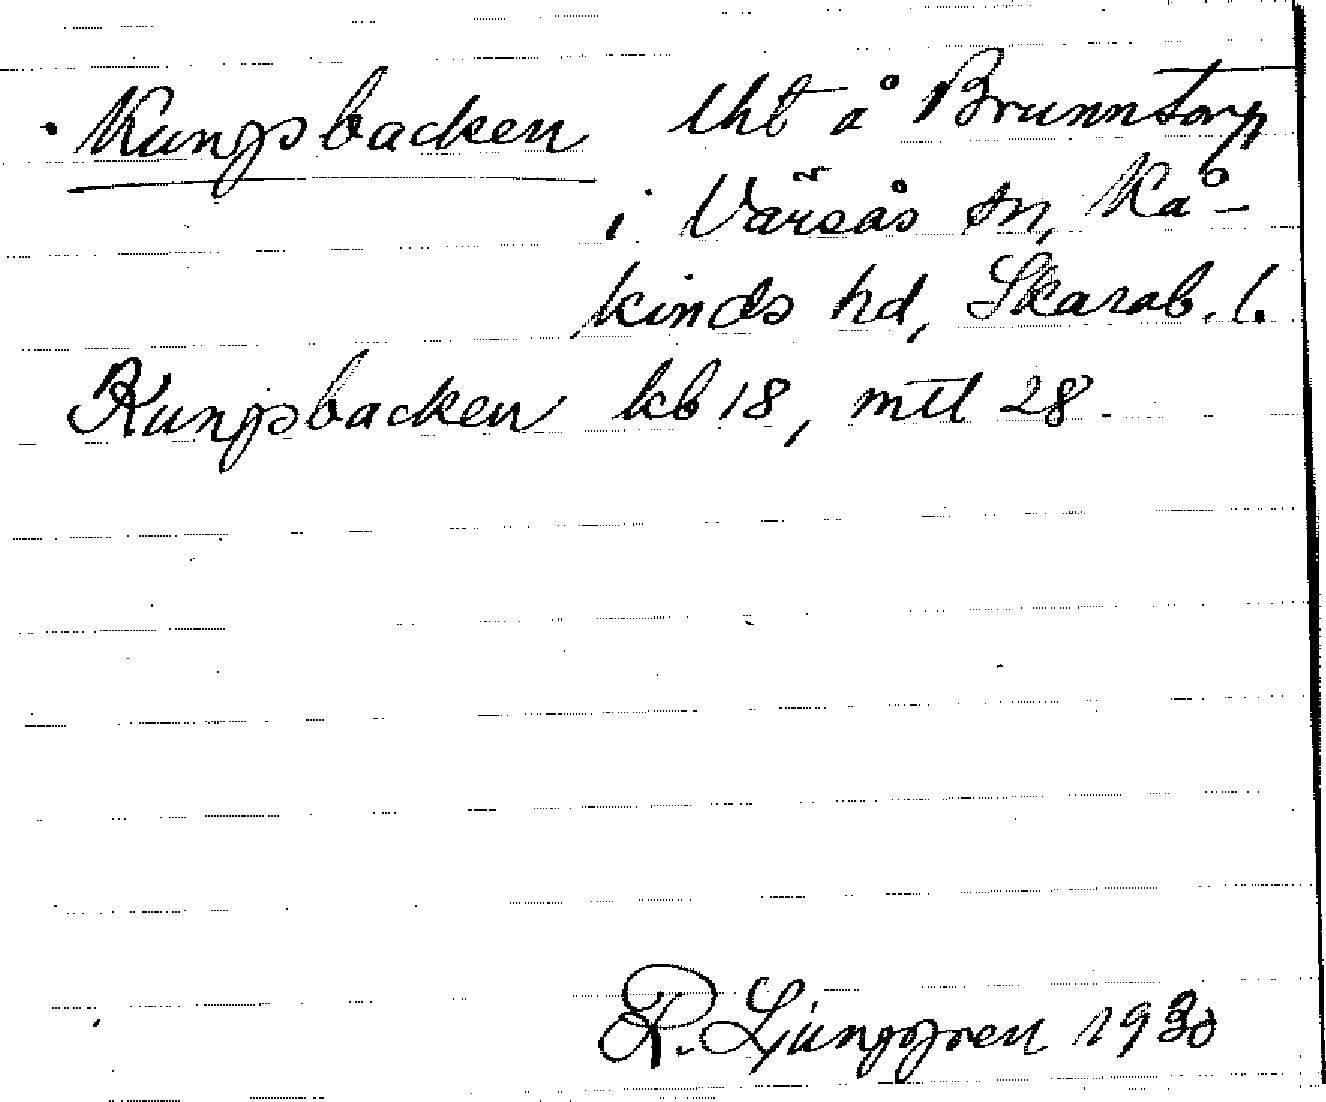 Kungsbacken lht å Brunntorp
i Värsås sn, Kå-
kinds hd, Skarab. l.
Kungsbacken kb 18, mtl 28
R. Ljunggren 1930